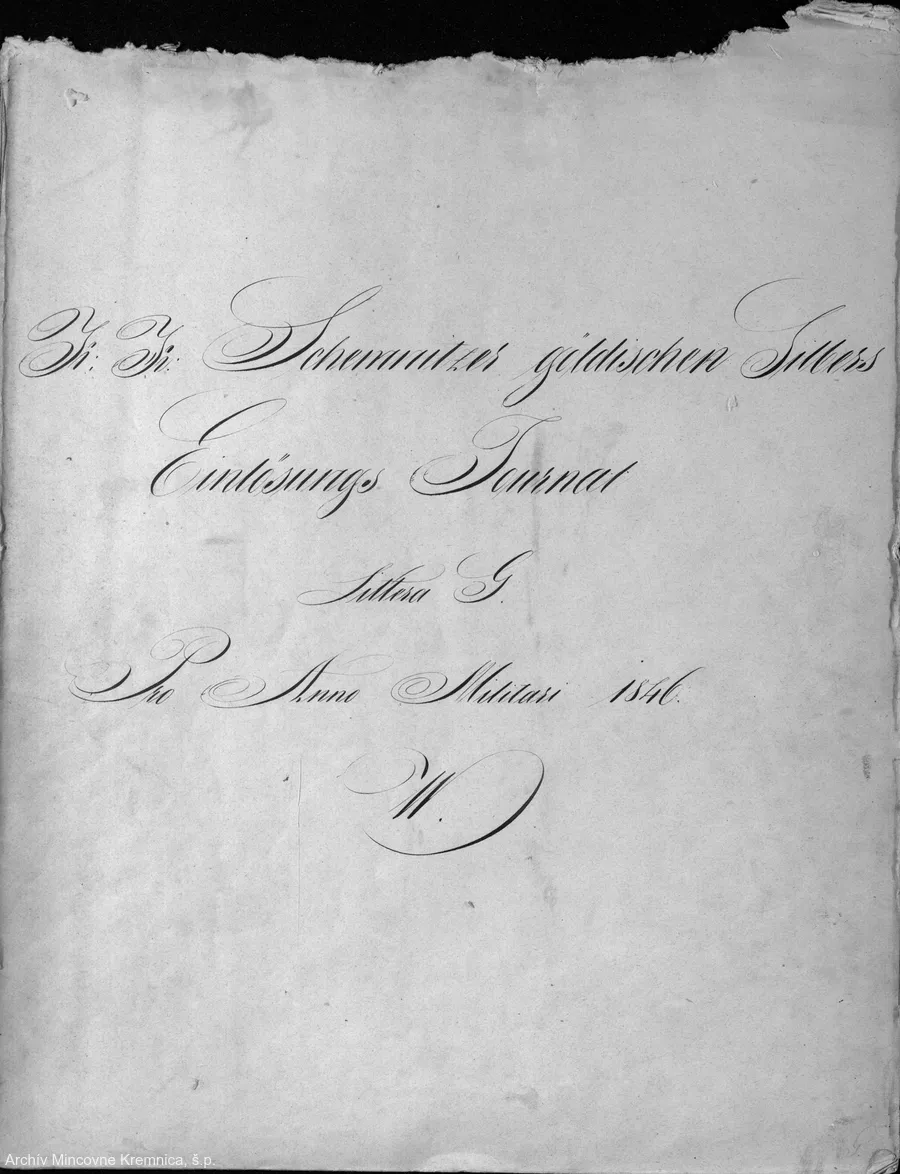 K: K: Schemnitzer göldischen Silbers
Einlösungs Journal
Littera G.
Pro Anno Militari 1846.
W.
Archív Mincovne Kremnica, š.p.